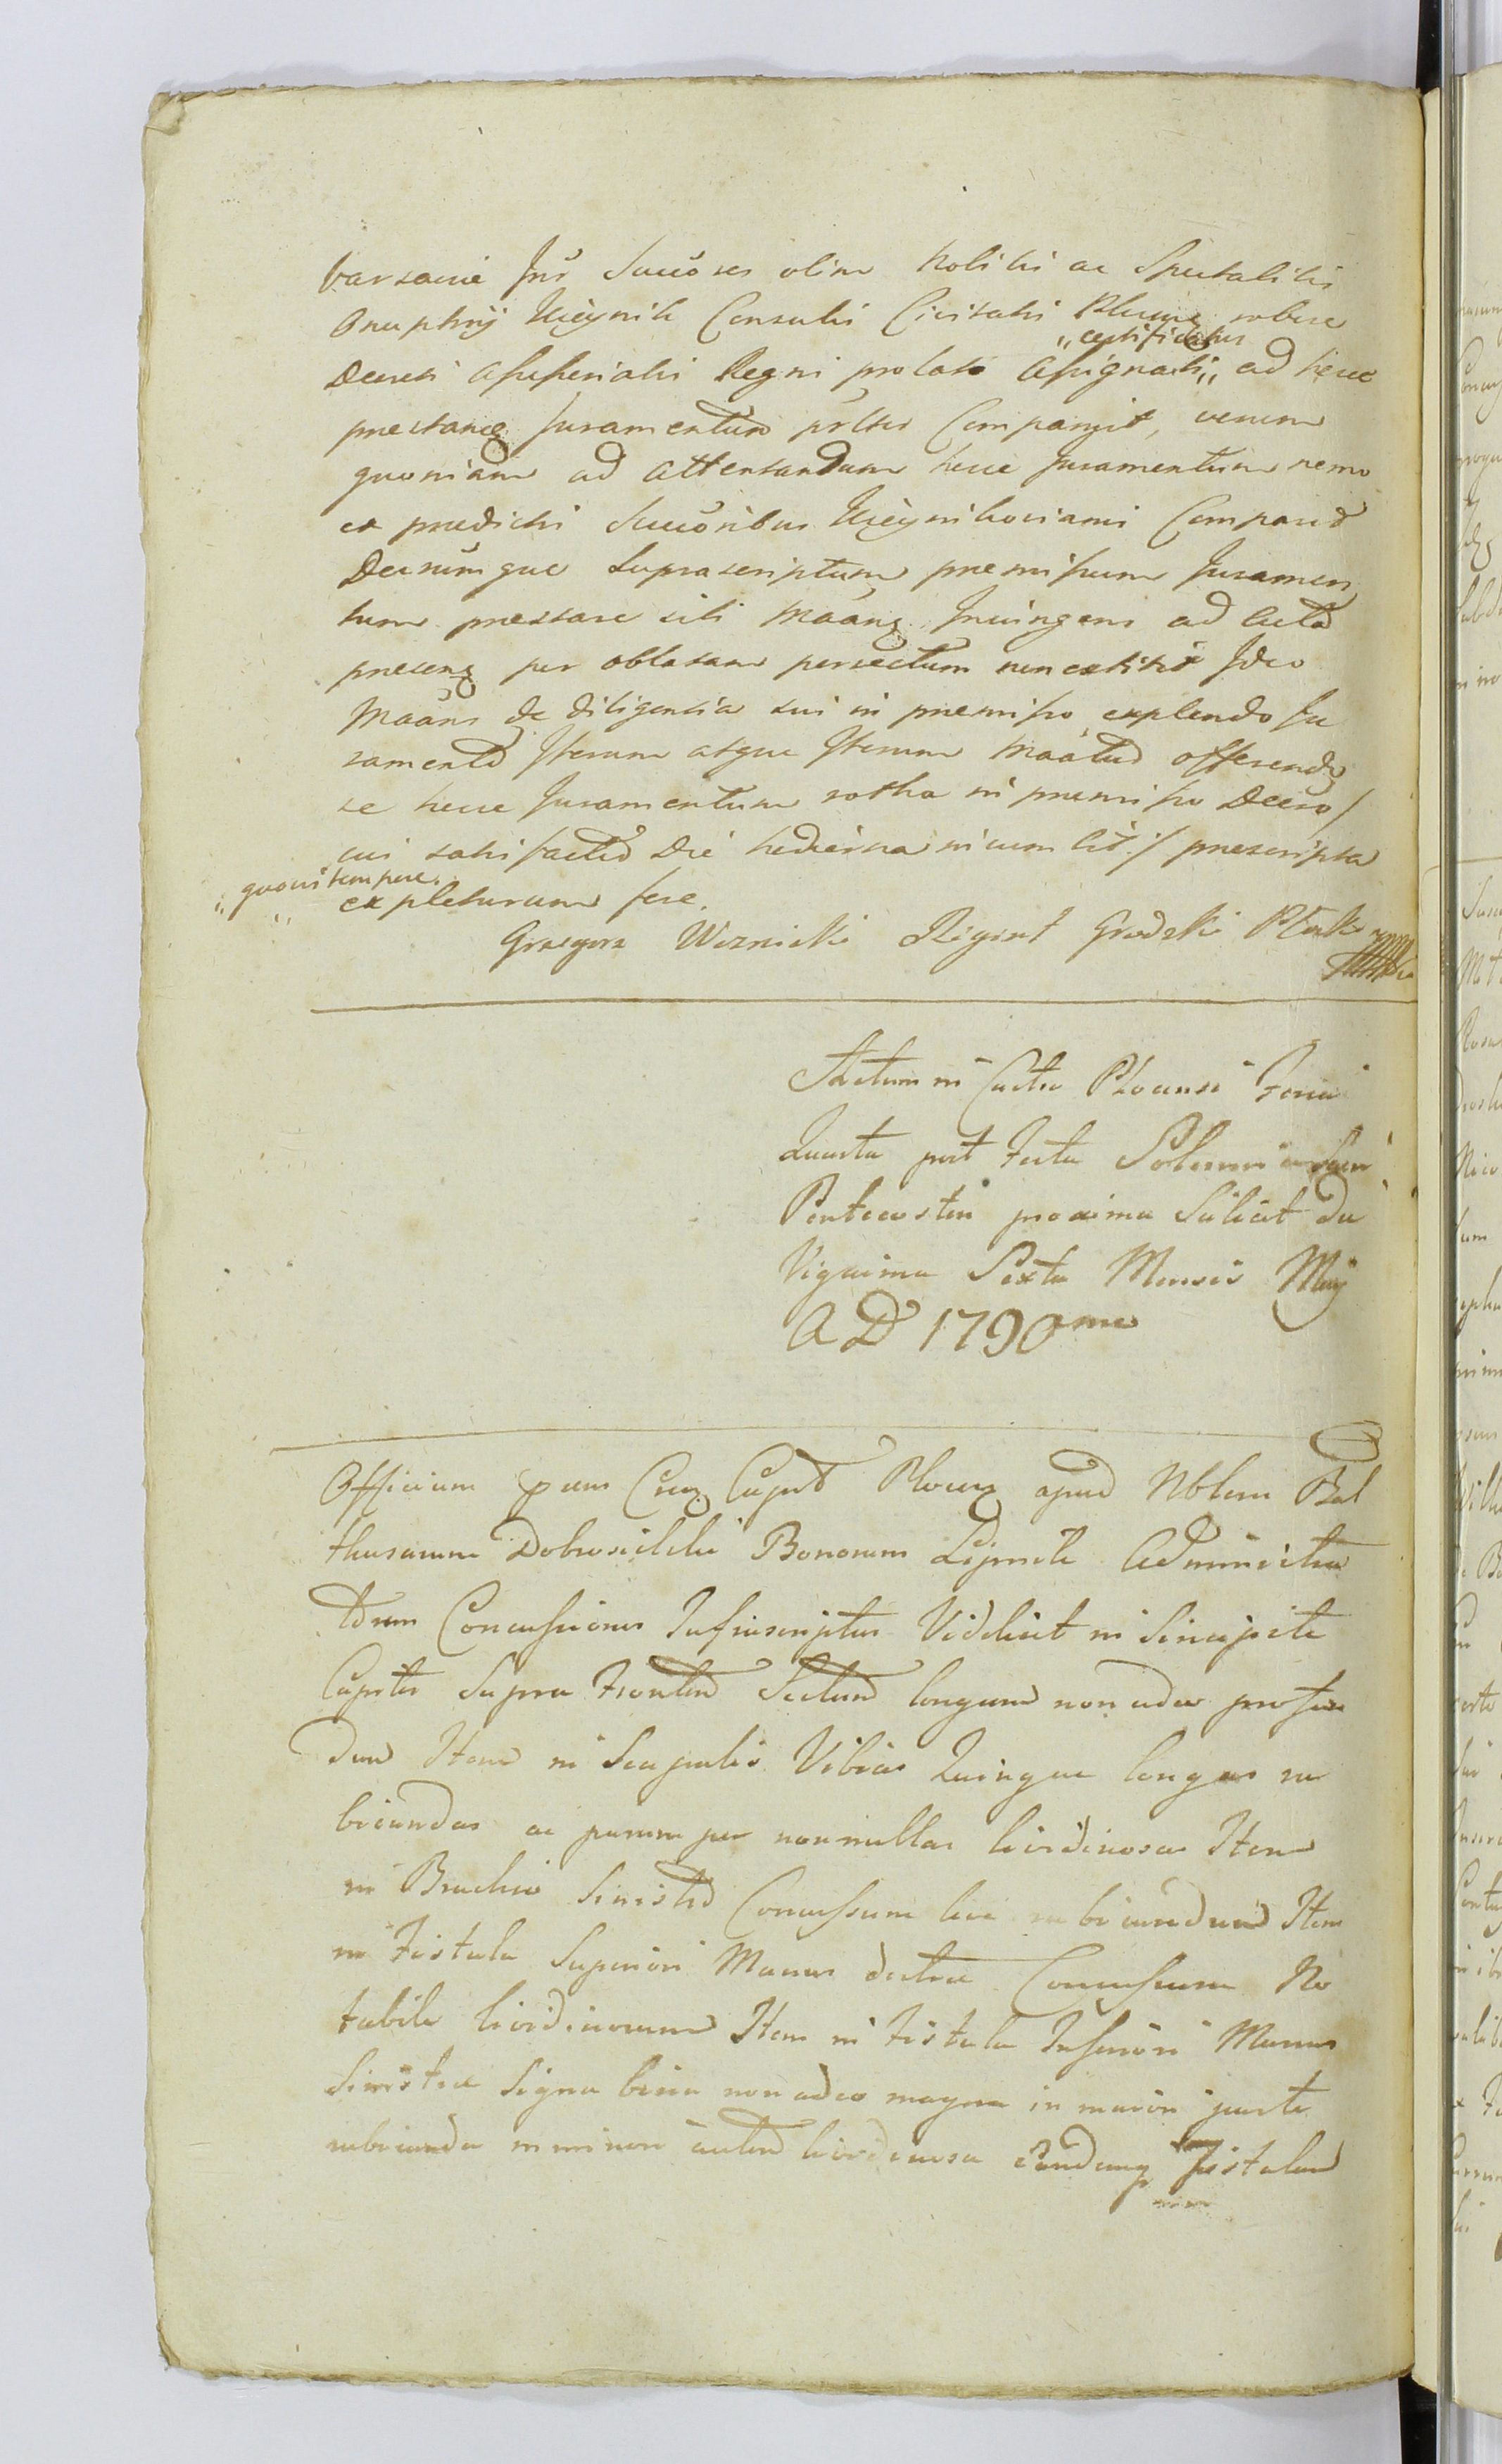 varsavie Inr Succores olim Nobilis ac Spectabilis
Onuphrij Uscynik Consulis Civitatis Plocen robore
„certificatus
Decreti Assessorialis Regni prolato assignati„ ad hecce
prestand Juramentum prtus Comparuit, verum
quoniam ad attentandum hecce Juramentum nemo
ex predictis Succoribus Uscynikovianis Comparuit
Decrumque suprascriptum premissum Juramen
tum prestare sibi Maang Iniungens ad Acta
presen per oblatam porrectum non extitit Ideo
Maans de diligentia sui in premisso explendo Ju
ramento Iterum atque Iterum Maatus offerendo
se hecce Juramentum rotha in premisso Decro/
cui satisfactus die hodierna incumbit :/ prescripta
„quovis tempore.
„ expleturum fere.
Grzegorz Woznicki Regent Grodzki Płocki
Actum in Castro Plocensi Feria
Quarta post Festa Solemnia Sacra
Pentecostes proxima Scilicet die
Vigesima Sexta Mensis Maij
A D 1790mo
Officium pns Cren Capit Plocen apud Nblem Bal
thasarum Dobrosielski Bonorum Administra
torem Concussiones Infrascriptas Videlicet in Sincipite
Capitis Supra Frontem Sectum longum non adeo profun
dum Item in Scapulis Vibices Quinque longas ru
bicundas ac parum per nonnullas lividinosas Item
in Brachio Sinistro Concussum leve rubicundum Item
in Fistula Superiori Manus dextrae Concussum No
tabile lividinosum Item in Fistula Inferiori Manus
Sinistrae Signa bina non adeo magna in maiori parte
rubicunda in minori autem lividinosa Eandemq Fistulam